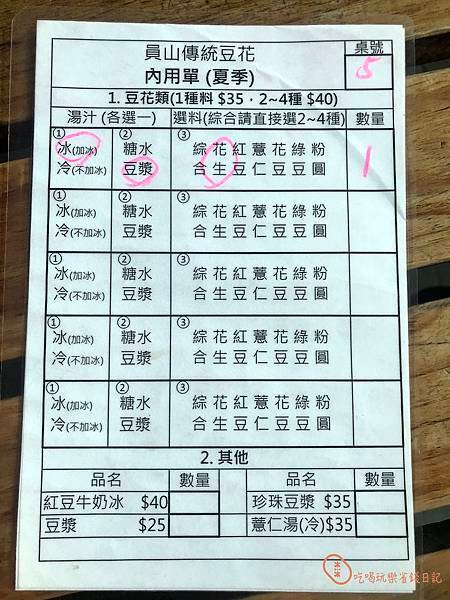 員山傳統豆花
內用單 (夏季)
桌號
5
1. 豆花類(1種料 $35，2~4種 $40)
湯汁 (各選一)
選料(綜合請直接選2~4種)
數量
① ② ③
冰(加冰) 糖水 綜花紅薏花綠粉
冷(不加冰) 豆漿 合生豆仁豆豆圓
1
① ② ③
冰(加冰) 糖水 綜花紅薏花綠粉
冷(不加冰) 豆漿 合生豆仁豆豆圓
① ② ③
冰(加冰) 糖水 綜花紅薏花綠粉
冷(不加冰) 豆漿 合生豆仁豆豆圓
① ② ③
冰(加冰) 糖水 綜花紅薏花綠粉
冷(不加冰) 豆漿 合生豆仁豆豆圓
① ② ③
冰(加冰) 糖水 綜花紅薏花綠粉
冷(不加冰) 豆漿 合生豆仁豆豆圓
2. 其他
品名 數量 品名 數量
紅豆牛奶冰 $40 珍珠豆漿 $35
豆漿 $25 薏仁湯(冷)$35
吃喝玩樂省錢日記